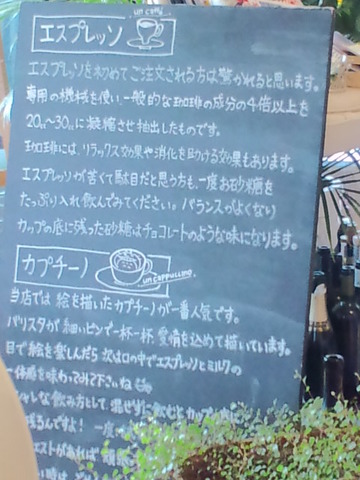 un caffè
エスプレッソ
エスプレッソを初めてご注文される方は驚かれると思います。
専用の機械を使い、一般的な珈琲の成分の4倍以上を
20cc〜30ccに凝縮させ抽出したものです。
珈琲には、リラックス効果や消化を助ける効果もあります。
エスプレッソが苦くて駄目だと思う方も、一度お砂糖を
たっぷり入れ飲んでみてください。バランスがよくなり
カップの底に残った砂糖はチョコレートのような味になります。
カプチーノ
un cappuccino
当店では 絵を描いたカプチーノが一番人気です。
バリスタが 細いピンで一杯一杯、愛情を込めて描いています。
目で絵を楽しんだら 次は口の中でエスプレッソとミルクの
一体感を味わってみて下さいね
な飲み方として、混ぜずに飲むとカップの底に
残るんですよ! 一度
エストがあれば